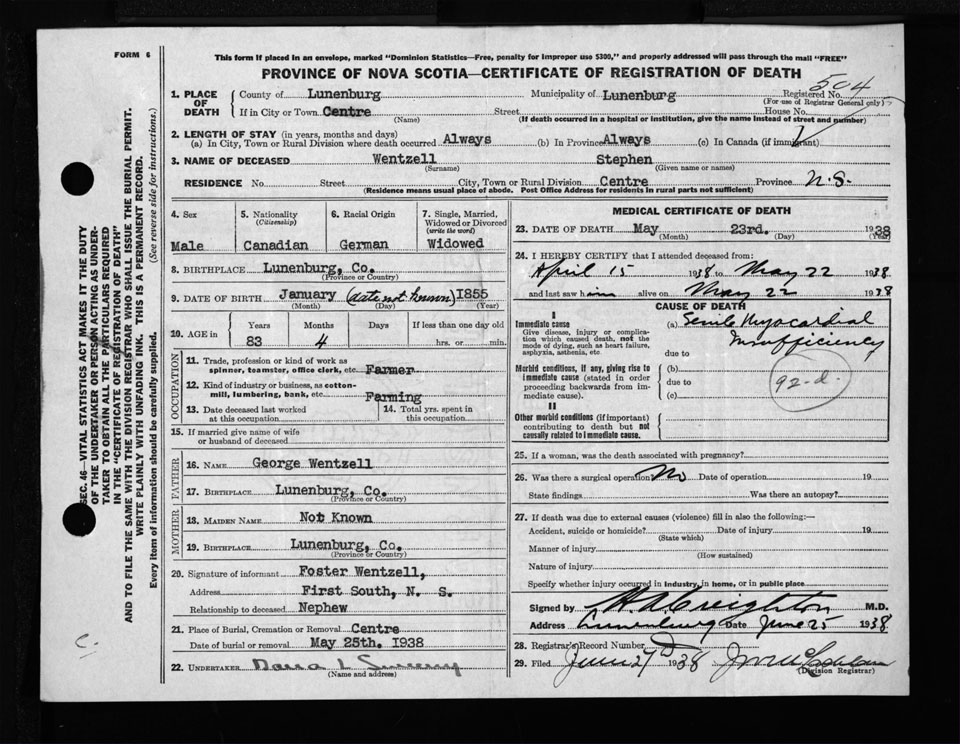 FORM 6
This form if placed in an envelope, marked "Dominion Statistics—Free, penalty for improper use $300," and properly addressed will pass through the mail "FREE"
PROVINCE OF NOVA SCOTIA—CERTIFICATE OF REGISTRATION OF DEATH
504
1. PLACE OF DEATH { County of Lunenburg Municipality of Lunenburg Registered No.
(For use of Registrar General only)
If in City or Town Centre Street House No.
(Name) (If death occurred in a hospital or institution, give the name instead of street and number)
2. LENGTH OF STAY (in years, months and days)
(a) In City, Town or Rural Division where death occurred Always (b) In Province Always (c) In Canada (if immigrant)
3. NAME OF DECEASED Wentzell Stephen
(Surname) (Given name or names)
RESIDENCE No. Street City, Town or Rural Division Centre Province N.S.
(Residence means usual place of abode. Post Office Address for residents in rural parts not sufficient)
SEC. 46—VITAL STATISTICS ACT MAKES IT THE DUTY
OF THE UNDERTAKER OR PERSON ACTING AS UNDER-
TAKER TO OBTAIN ALL THE PARTICULARS REQUIRED
IN THE "CERTIFICATE OF REGISTRATION OF DEATH"
AND TO FILE THE SAME WITH THE DIVISION REGISTRAR WHO SHALL ISSUE THE BURIAL PERMIT.
WRITE PLAINLY WITH UNFADING INK. THIS IS A PERMANENT RECORD.
Every item of information should be carefully supplied. (See reverse side for instructions.)
C.
4. Sex
Male
5. Nationality
(Citizenship)
Canadian
6. Racial Origin
German
7. Single, Married,
Widowed or Divorced
(write the word)
Widowed
8. BIRTHPLACE Lunenburg, Co.
(Province or Country)
9. DATE OF BIRTH January (date not known) 1855
(Month) (Day) (Year)
10. AGE in
Years Months Days If less than one day old
83 4 hrs. or min.
OCCUPATION
11. Trade, profession or kind of work as
spinner, teamster, office clerk, etc. Farmer
12. Kind of industry or business, as cotton-
mill, lumbering, bank, etc. Farming
13. Date deceased last worked
at this occupation
14. Total yrs. spent in
this occupation
15. If married give name of wife
or husband of deceased
FATHER
16. NAME George Wentzell
17. BIRTHPLACE Lunenburg, Co.
(Province or Country)
MOTHER
18. MAIDEN NAME Not Known
19. BIRTHPLACE Lunenburg, Co.
(Province or Country)
20. Signature of informant Foster Wentzell,
Address First South, N. S.
Relationship to deceased Nephew
21. Place of Burial, Cremation or Removal Centre
Date of burial or removal May 25th. 1938
22. UNDERTAKER
(Name and address)
MEDICAL CERTIFICATE OF DEATH
23. DATE OF DEATH May 23rd. 1938
(Month) (Day) (Year)
24. I HEREBY CERTIFY that I attended deceased from:
April 15 1938 to May 22 1938
and last saw him alive on May 22 1938
CAUSE OF DEATH
I
Immediate cause
Give disease, injury or complica-
tion which caused death, not the
mode of dying, such as heart failure,
asphyxia, asthenia, etc.
(a) Senile Myocardial
Insufficiency
due to
Morbid conditions, if any, giving rise to
immediate cause (stated in order
proceeding backwards from im-
mediate cause).
(b)
due to
(c)
92-d.
II
Other morbid conditions (if important)
contributing to death but not
causally related to immediate cause.
25. If a woman, was the death associated with pregnancy?
26. Was there a surgical operation No Date of operation 19
State findings Was there an autopsy?
27. If death was due to external causes (violence) fill in also the following:—
Accident, suicide or homicide? Date of injury 19
(State which)
Manner of injury
(How sustained)
Nature of injury
Specify whether injury occurred in industry, in home, or in public place
Signed by H. A. Creighton M.D.
Address Lunenburg Date June 25 1938
28. Registrar's Record Number
29. Filed June 27 1938
(Division Registrar)